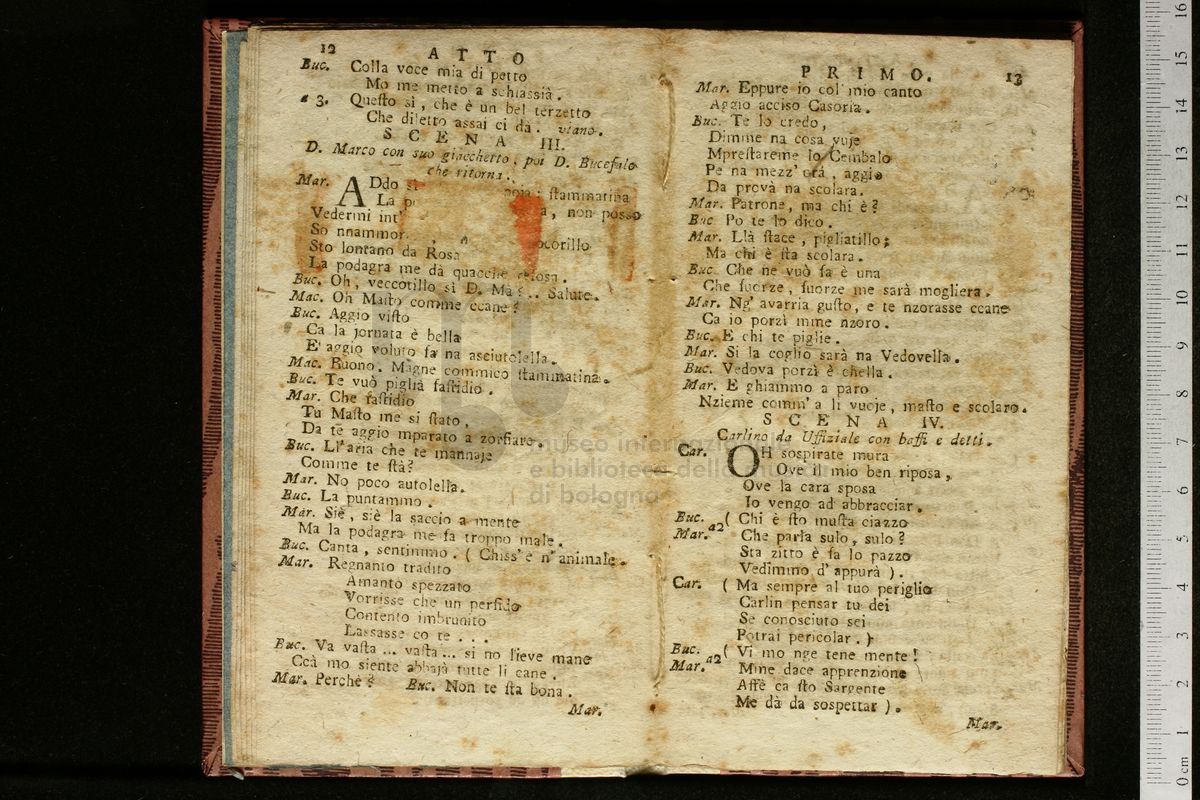 12
ATTO
Buc. Colla voce mia di petto
Mo me metto a schiassià.
a 3. Questo si, che è un bel terzetto
Che diletto assai ci dà. viano.
SCENA III.
D. Marco con suo giacchetto, poi D. Bucefalo
che ritorna.
Mar. ADdo stammatina
La non posso
Vedermi int'
So nnammor
Sto lontano da Rosa ocorillo
La podagra me dà quacche
Buc. Oh, veccotillo si D. Salute.
Mac. Oh Masto comme ccane?
Buc. Aggio visto
Ca la jornata è bella
E' aggio voluto fa na asciutolella.
Mac. Buono. Magne commico stammatina.
Buc. Te vuò piglià fastidio.
Mar. Che fastidio
Tu Masto me si stato,
Da te aggio mparato a zorfiare.
Buc. Ll'aria che te mannaje
Comme te stà?
Mar. No poco autolella.
Buc. La puntammo.
Mar. Siè, siè la saccio a mente
Ma la podagra me fa troppo male.
Buc. Canta, sentimmo. (Chiss' è n' animale.
Mar. Regnanto tradito
Amanto spezzato
Vorrisse che un perfido
Contento imbrunito
Lassasse co te ...
Buc. Va vasta ... vasta ... si no lieve mane
Ccà mo siente abbajà tutte li cane.
Mar. Perchè? Buc. Non te sta bona.
Mar.
PRIMO. 13
Mar. Eppure io col mio canto
Aggio acciso Casoria.
Buc. Te lo credo,
Dimme na cosa vuje
Mprestareme lo Cembalo
Pe na mezz' ora, aggio
Da provà na scolara.
Mar. Patrone, ma chi è?
Buc Po te lo dico.
Mar. Llà stace, pigliatillo;
Ma chi è sta scolara.
Buc. Che ne vuò fa è una
Che fuorze, fuorze me sarà mogliera.
Mar. Ng' avarria gusto, e te nzorasse ccane
Ca io porzì mme nzoro.
Buc. E chi te piglie.
Mar. Si la coglio sarà na Vedovella.
Buc. Vedova porzì è chella.
Mar. E ghiammo a paro
Nzieme comm' a li vuoje, masto e scolaro.
SCENA IV.
Carlino da Uffiziale con baffi e detti.
Car. OH sospirate mura
Ove il mio ben riposa,
Ove la cara sposa
Io vengo ad abbracciar.
Buc. Mar. a2 ( Chi è sto musta ciazzo
Che parla sulo, sulo?
Sta zitto è fa lo pazzo
Vedimmo d' appurà ).
Car. ( Ma sempre al tuo periglio
Carlin pensar tu dei
Se conosciuto sei
Potrai pericolar. )
Buc. Mar. a2 ( Vi mo nge tene mente!
Mme dace apprenzione
Affè ca sto Sargente
Me dà da sospettar ).
Mar.
museo internazionale
e biblioteca della musica
di bologna
0 cm 1 2 3 4 5 6 7 8 9 10 11 12 13 14 15 16